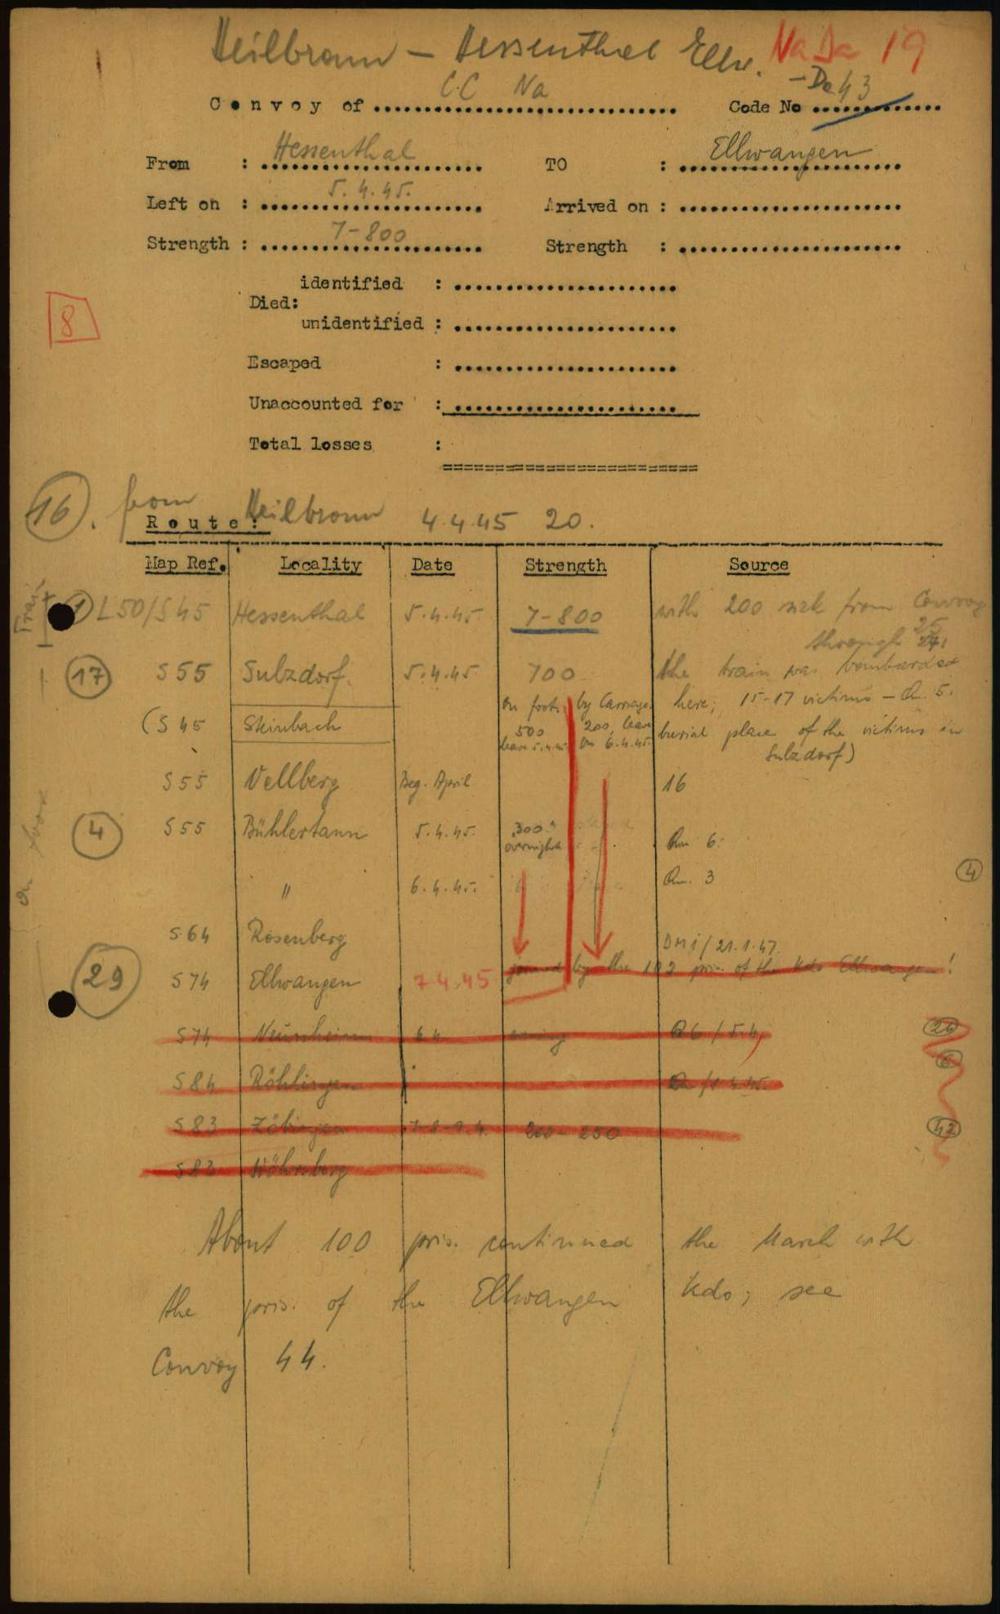 Heilbronn – Hessenthal Ellw. Na Da 19
– Da 43
Convoy of C.C Na Code No
From : Hessenthal TO : Ellwangen
Left on : 5.4.45. Arrived on :
Strength : 7-800 Strength :
identified :
Died:
unidentified :
8
Escaped :
Unaccounted for :
Total losses :
16. from Heilbronn 4.4.45 20.
Route:
Map Ref. Locality Date Strength Source
1 L50/S45 Hessenthal 5.4.45 7-800 with 200 sick from Convoy
through 25
24,
17 S55 Sulzdorf. 5.4.45 700 the train was bombarded
on foot, by Carriage. here; 15-17 victims – Qu. 5.
(S45 Steinbach 500 200, leave burial place of the victims in
leave 5.4.45 on 6.4.45 Sulzdorf)
S55 Vellberg Beg. April 16
4 S55 Bühlertann 5.4.45. 300 Qu 6.
overnight
" 6.4.45. Qu. 3 4
S64 Rosenberg
DMi/21.1.47.
29 S74 Ellwangen 7.4.45 joined by the 102 pris. of the Kdo Ellwangen!
S74 Neunheim 6.4. Q6/5.4, 26
S84 Röhlingen 6
S83 Zöbingen 7.-8.-9.4. 200-250 42
S83
Train
on foot
About 100 pris. continued the March with
the pris. of the Ellwangen Kdo; see
Convoy 44.